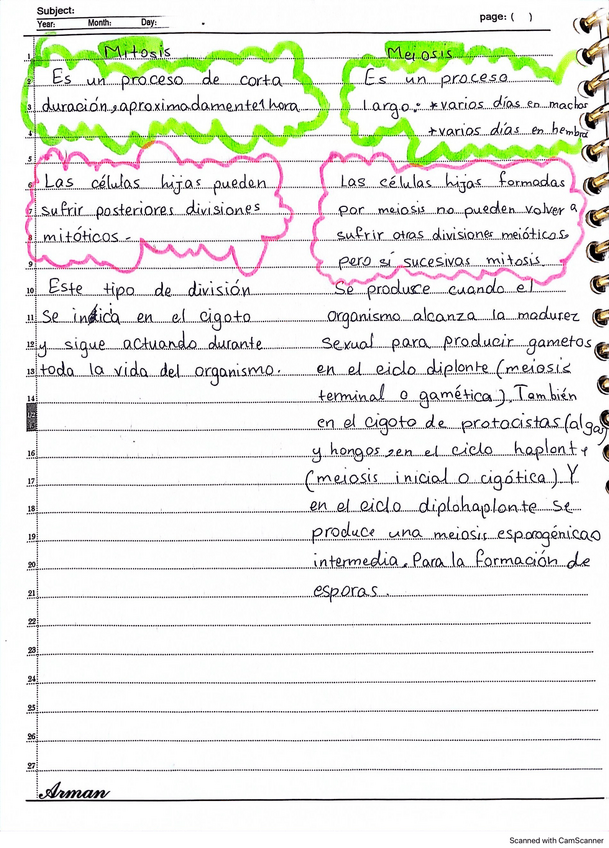 Subject:
Year: Month: Day:
page: ( )
Mitosis
Es un proceso de corta
duración, aproximadamente 1 hora
Meiosis
Es un proceso
largo: * varios días en machos
+ varios días en hembra
Las células hijas pueden
sufrir posteriores divisiones
mitóticos.
Las células hijas formadas
por meiosis no pueden volver a
sufrir otras divisiones meióticos,
pero sí sucesivas mitosis.
Este tipo de división
se indica en el cigoto
y sigue actuando durante
toda la vida del organismo.
Se produce cuando el
organismo alcanza la madurez
sexual para producir gametos
en el ciclo diplonte (meiosis
terminal o gamética). También
en el cigoto de protocistas (algas
y hongos, en el ciclo haplonte
(meiosis inicial o cigótica) Y
en el ciclo diplohaplonte se
produce una meiosis esporogénica o
intermedia, Para la formación de
esporas.
1
2
3
4
5
6
7
8
9
10
11
12
13
14
16
17
18
19
20
21
22
23
24
25
26
27
Arman
Scanned with CamScanner